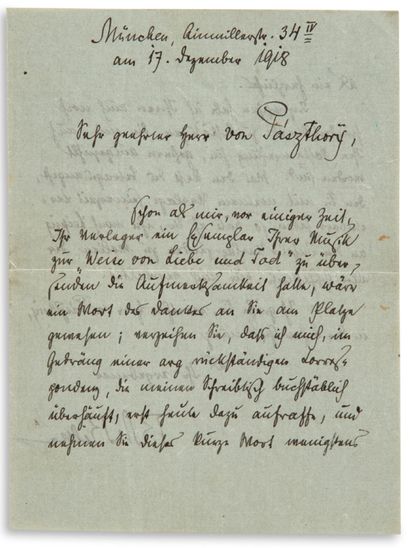 München, Ainmillerstr. 34 IV
am 17. Dezember 1918
Sehr geehrter Herr von Pászthory,
schon als mir, vor einiger Zeit,
Ihr Verleger ein Exemplar Ihrer Musik
zur "Weise von Liebe und Tod" zu über-
senden die Aufmerksamkeit hatte, wäre
ein Wort des Dankes an Sie am Platze
gewesen; verzeihen Sie, dass ich mich, im
Gedräng einer arg rückständigen Corres-
pondenz, die meinen Schreibtisch buchstäblich
überhäuft, erst heute dazu aufraffe, und
nehmen Sie dieses kurze Wort wenigstens